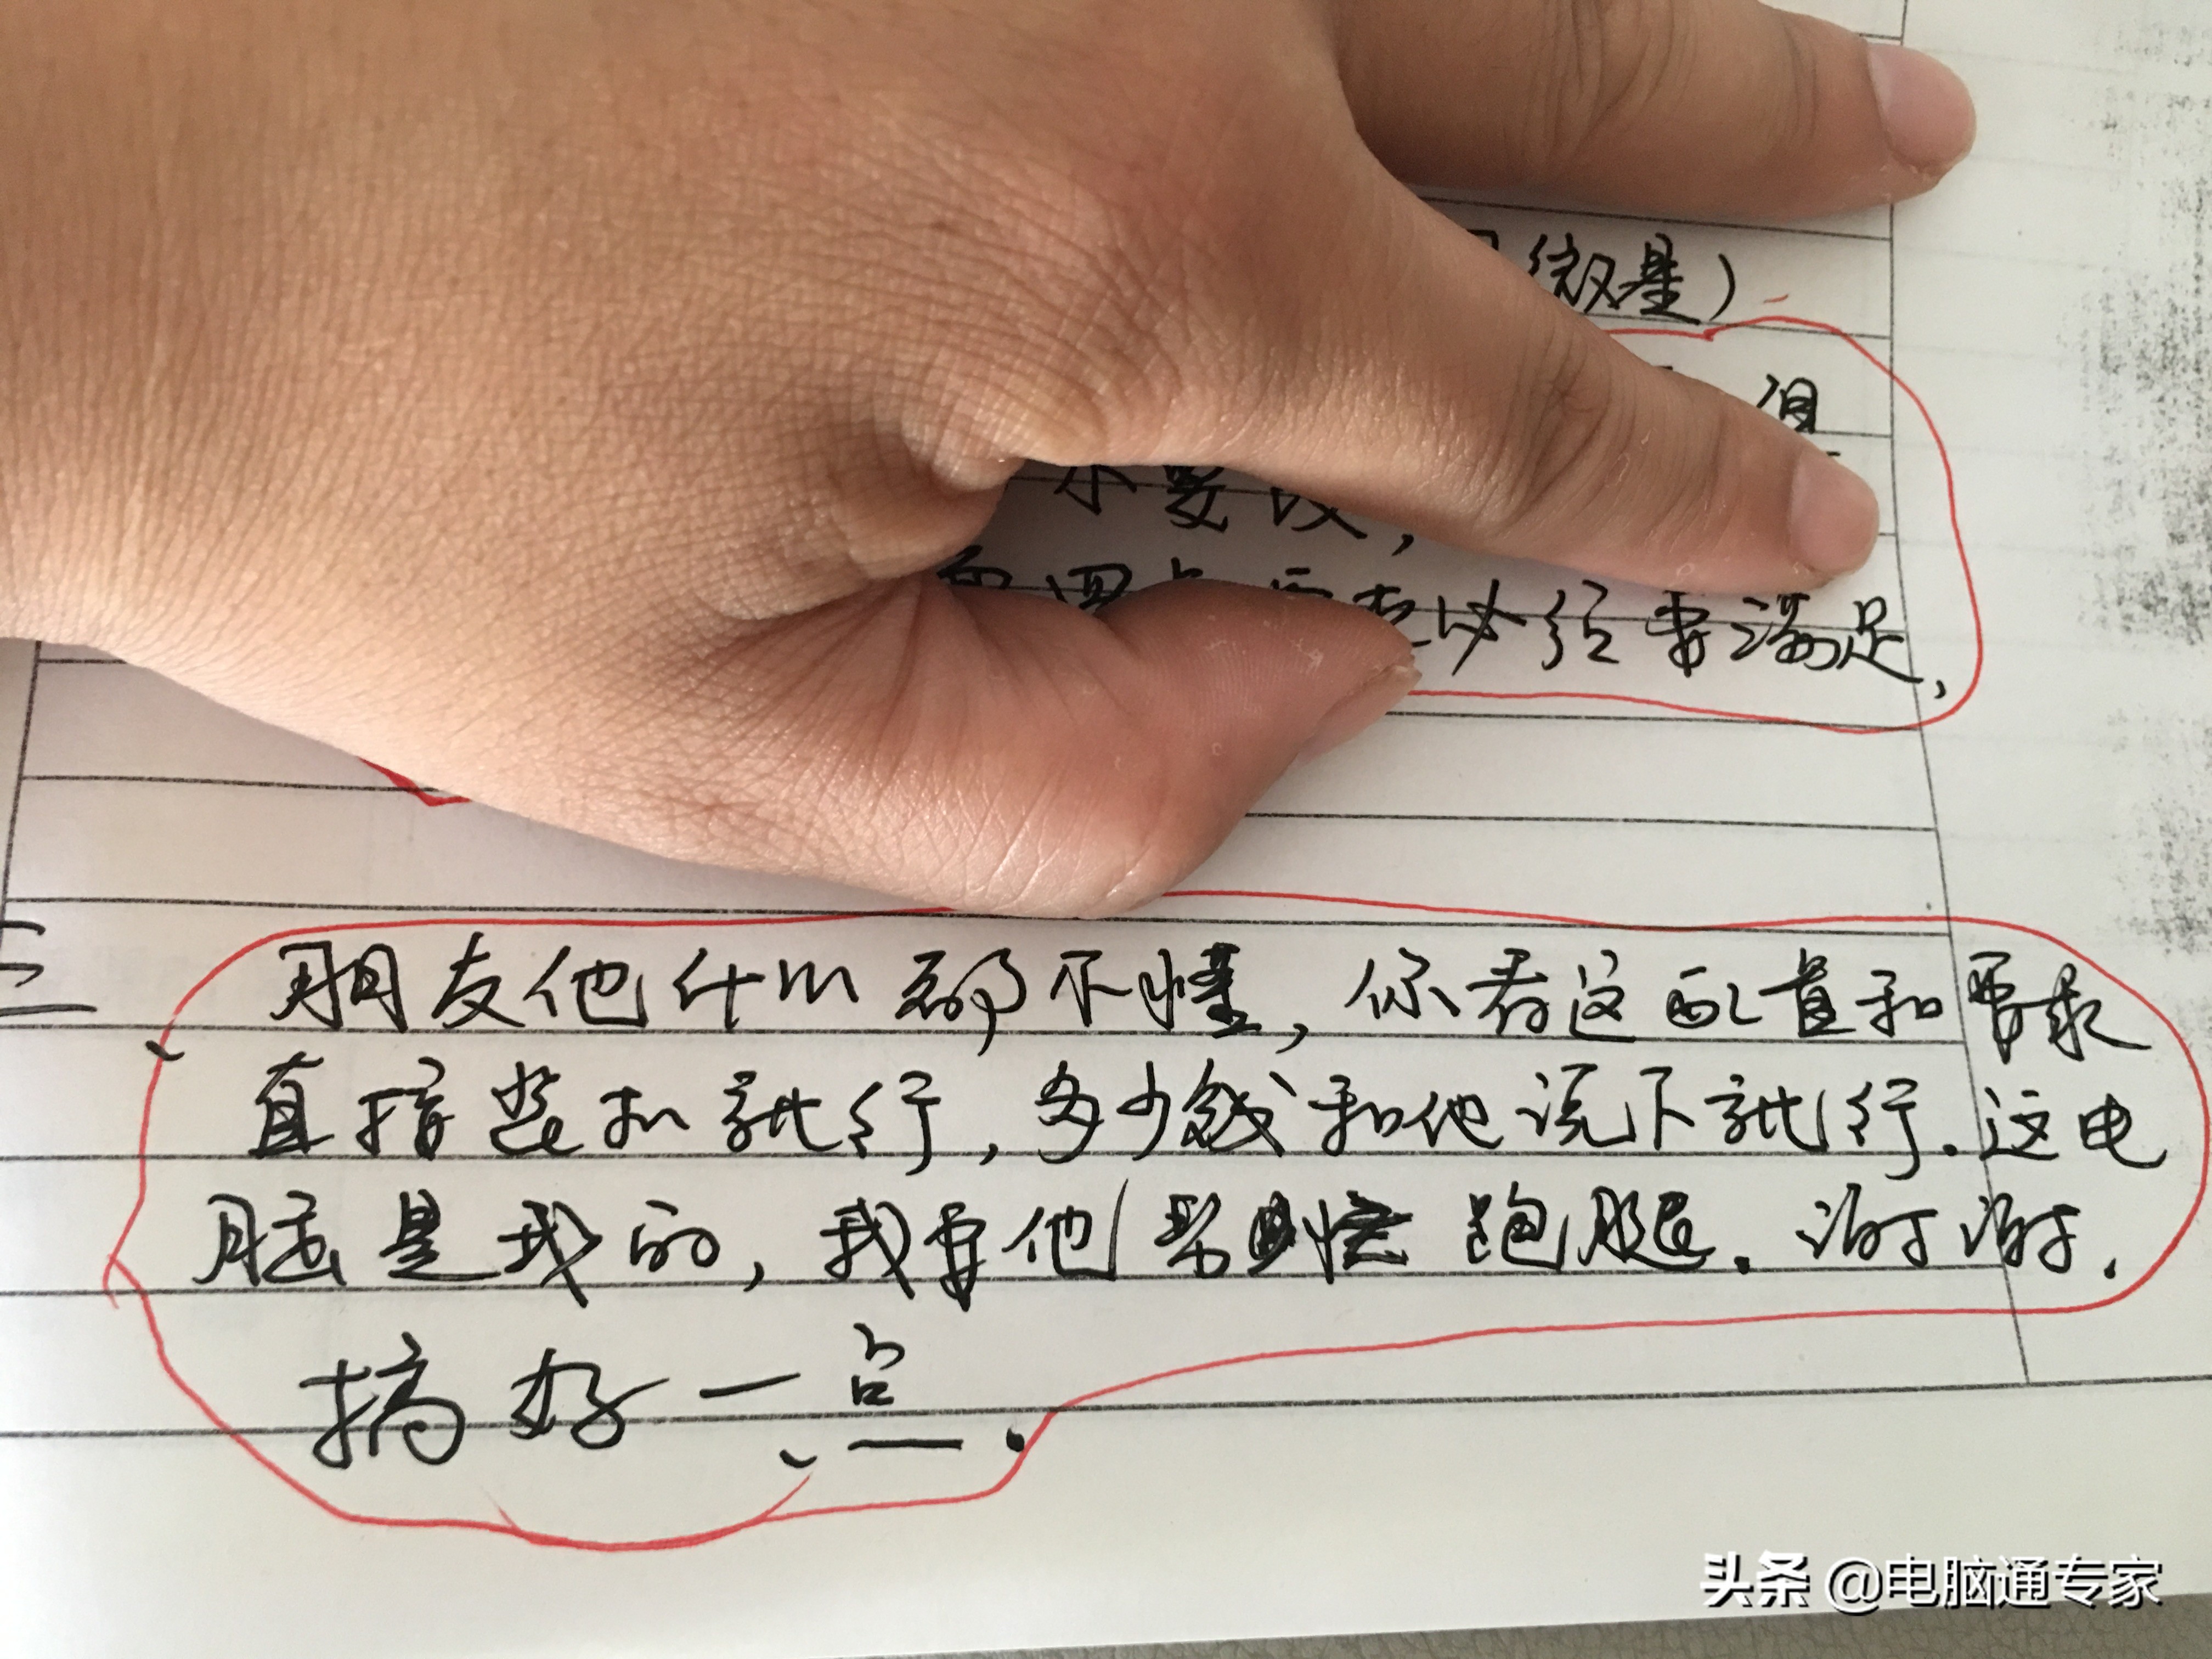 微星）
不要改，
必须要满足，
三、朋友他什么都不懂，你看这配置和要求
直接装机就行，多少钱和他说下就行.这电
脑是我的，我要他帮忙跑腿.谢谢.
搞好一点.
头条 @电脑通专家